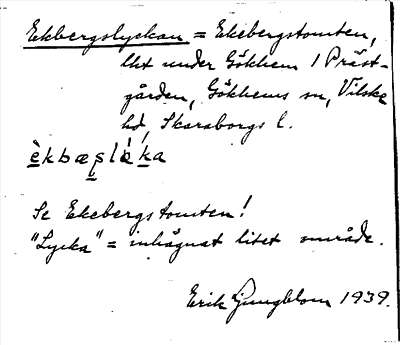 Ekbergslyckan = Ekebergstomten,
lht under Gökhem 1 Präst-
gården, Gökhems sn, Vilske
hd, Skaraborgs l.
èkbæṣlákka
Se Ekebergstomten!
"Lycka" = inhägnat litet område.
Erik Ljungblom 1939.